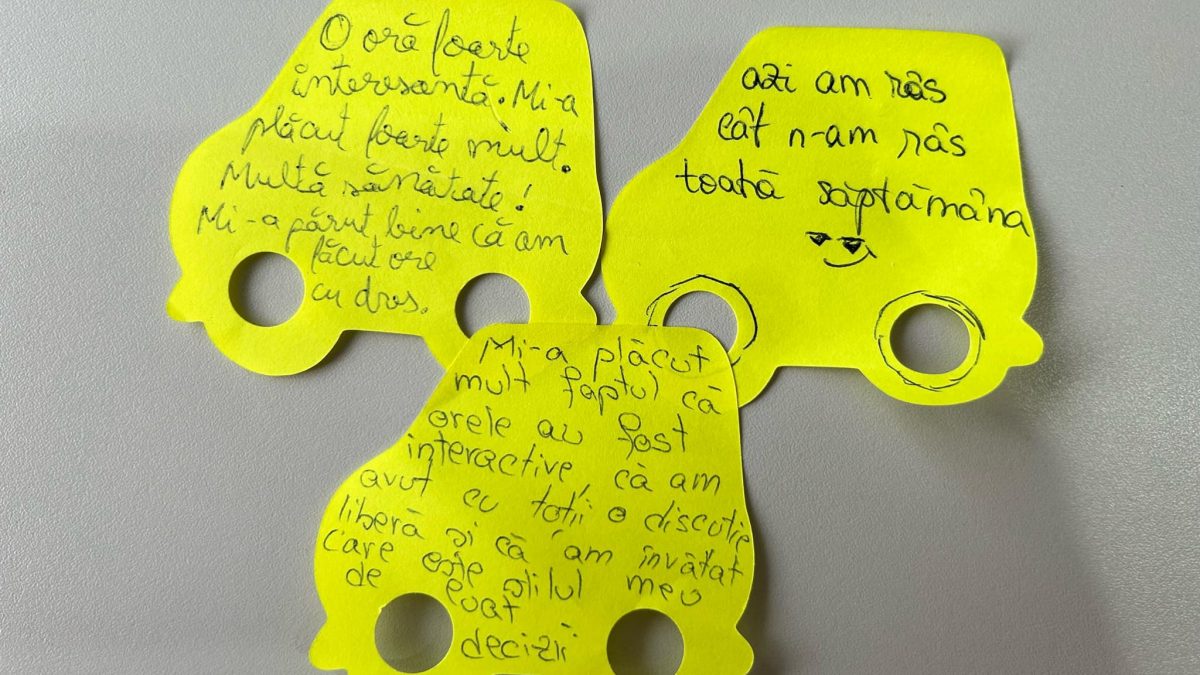 O oră foarte
interesantă. Mi-a
plăcut foarte mult.
Multă sănătate!
Mi-a părut bine că am
făcut ore
cu dvs.
azi am râs
cât n-am râs
toată săptămâna
Mi-a plăcut
mult faptul că
orele au fost
interactive, că am
avut cu toții o discuție
liberă și că am învățat
care este stilul meu
de luat
decizii